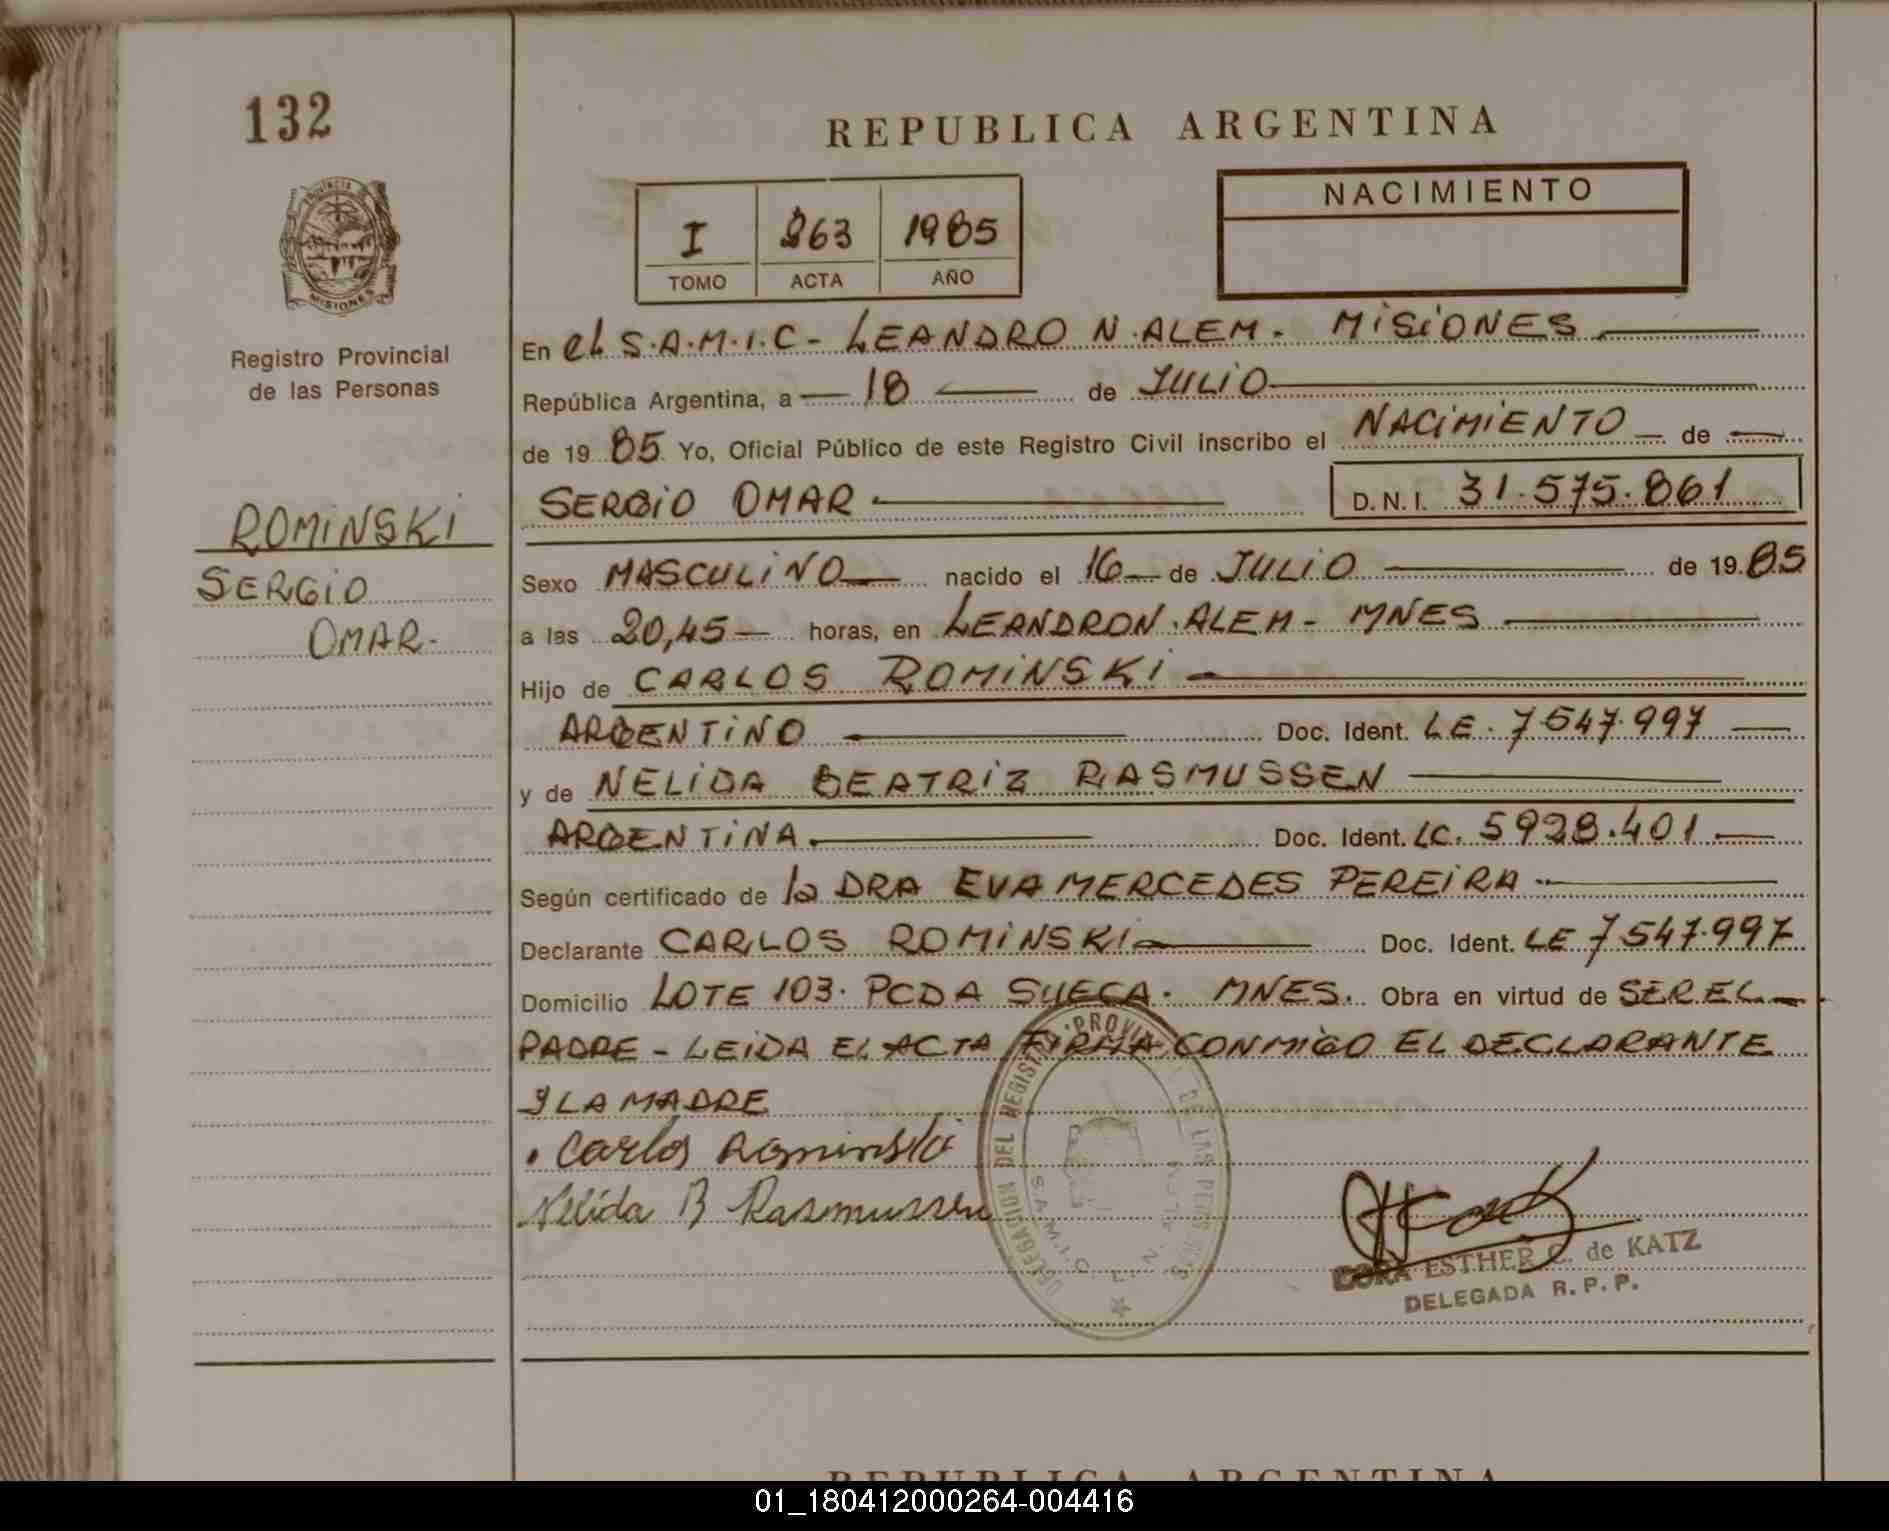 132
REPUBLICA ARGENTINA
NACIMIENTO
I 263 1985
TOMO ACTA AÑO
MISIONES
Registro Provincial
de las Personas
ROMINSKI
SERGIO
OMAR-
En el S.A.M.I.C- LEANDRO N.ALEM. MISIONES
República Argentina, a 18 de JULIO
de 1985 Yo, Oficial Público de este Registro Civil inscribo el NACIMIENTO de
SERGIO OMAR D.N.I. 31.575.861
Sexo MASCULINO nacido el 16 de JULIO de 1985
a las 20,45 horas, en LEANDRO N.ALEM- MNES
Hijo de CARLOS ROMINSKI
ARGENTINO Doc. Ident. LE. 7547.997
y de NELIDA BEATRIZ RASMUSSEN
ARGENTINA. Doc. Ident. LC. 5928.401
Según certificado de la DRA EVA MERCEDES PEREIRA
Declarante CARLOS ROMINSKI Doc. Ident. LE 7547.997
Domicilio LOTE 103. PCDA SUECA. MNES. Obra en virtud de SER EL
PADRE - LEIDA EL ACTA FIRMA CONMIGO EL DECLARANTE
Y LA MADRE
Carlos Rominski
Nelida B Rasmussen
DELEGACION DEL REGISTRO PROVINCIAL DE LAS PERSONAS
S.A.M.I.C. L. N. ALEM
DORA ESTHER C. de KATZ
DELEGADA R.P.P.
REPUBLICA ARGENTINA
01_180412000264-004416